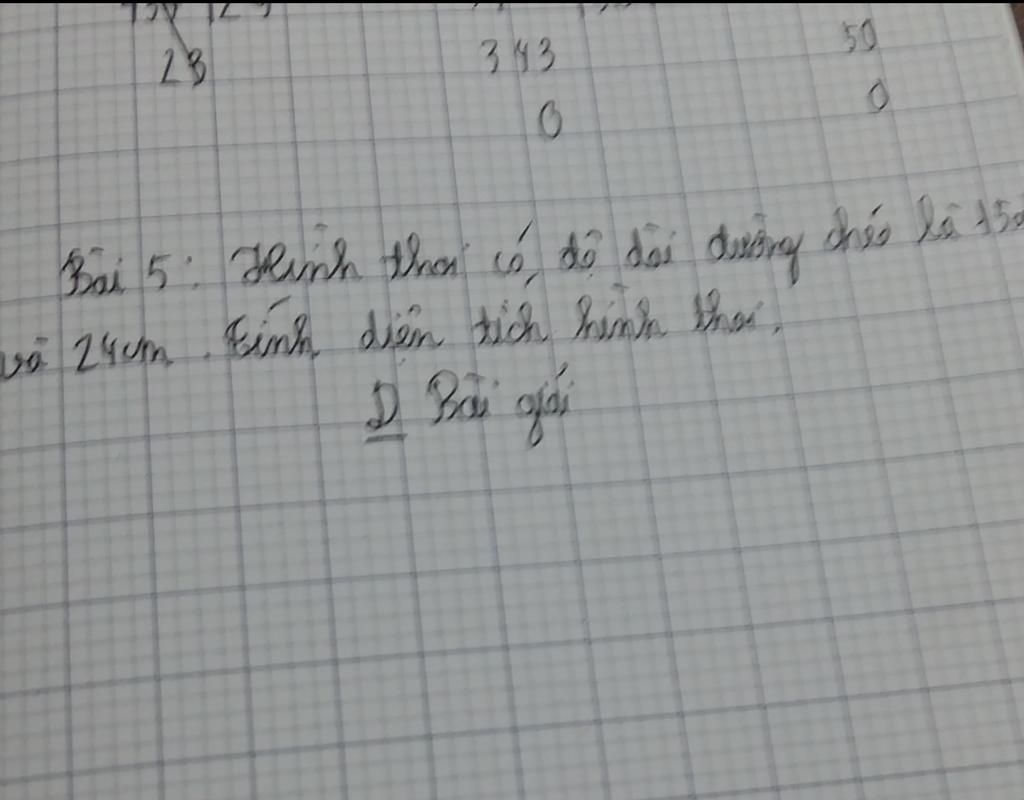 23 343 50
0 0
Bài 5: Hình thoi có độ dài đường chéo là 15c
và 24cm. Tính diện tích hình thoi.
Bài giải